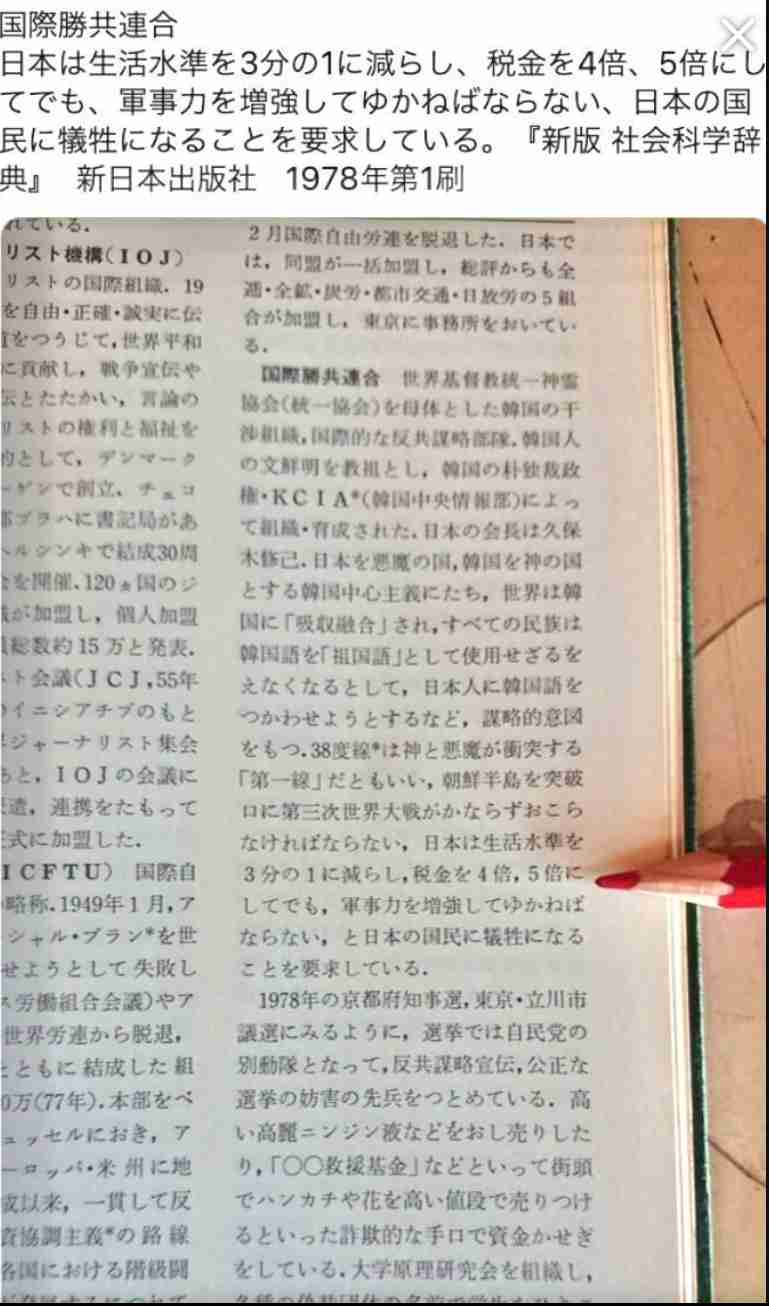 国際勝共連合
日本は生活水準を3分の1に減らし、税金を4倍、5倍にし
てでも、軍事力を増強してゆかねばならない、日本の国
民に犠牲になることを要求している。『新版 社会科学辞
典』 新日本出版社 1978年第1刷
れている.
リスト機構(IOJ)
リストの国際組織. 19
を自由・正確・誠実に伝
をつうじて,世界平和
に貢献し, 戦争宣伝や
伝とたたかい, 言論の
リストの権利と福祉を
的として, デンマーク
ーゲンで創立, チェコ
部プラハに書記局があ
ヘルシンキで結成30周
を開催、120ヵ国のジ
が加盟し, 個人加盟
総数約15万と発表.
ト会議(JCJ,55年
イニシアチブのもと
ジャーナリスト集会
あと, IOJの会議に
遣, 連携をたもって
式に加盟した.
ICFTU) 国際自
略称.1949年1月,ア
シャル・プラン*を世
せようとして失敗し
ス労働組合会議)やア
世界労連から脱退,
とともに結成した組
0万(77年).本部をベ
ュッセルにおき, ア
ーロッパ・米州に地
成以来, 一貫して反
資協調主義*の路線
各国における階級闘
2月国際自由労連を脱退した. 日本で
は, 同盟が一括加盟し, 総評からも全
逓・全鉱・炭労・都市交通・日放労の5組
合が加盟し, 東京に事務所をおいてい
る.
国際勝共連合 世界基督教統一神霊
協会(統一協会)を母体とした韓国の干
渉組織,国際的な反共謀略部隊.韓国人
の文鮮明を教祖とし, 韓国の朴独裁政
権・KCIA*(韓国中央情報部)によっ
て組織・育成された.日本の会長は久保
木修己.日本を悪魔の国,韓国を神の国
とする韓国中心主義にたち, 世界は韓
国に「吸収融合」され,すべての民族は
韓国語を「祖国語」として使用せざるを
えなくなるとして, 日本人に韓国語を
つかわせようとするなど, 謀略的意図
をもつ.38度線*は神と悪魔が衝突する
「第一線」だともいい, 朝鮮半島を突破
口に第三次世界大戦がかならずおこら
なければならない, 日本は生活水準を
3分の1に減らし,税金を4倍, 5倍に
してでも, 軍事力を増強してゆかねば
ならない, と日本の国民に犠牲になる
ことを要求している.
1978年の京都府知事選,東京・立川市
議選にみるように, 選挙では自民党の
別動隊となって,反共謀略宣伝,公正な
選挙の妨害の先兵をつとめている. 高
い高麗ニンジン液などをおし売りした
り,「〇〇救援基金」などといって街頭
でハンカチや花を高い値段で売りつけ
るといった詐欺的な手口で資金かせぎ
をしている.大学原理研究会を組織し,